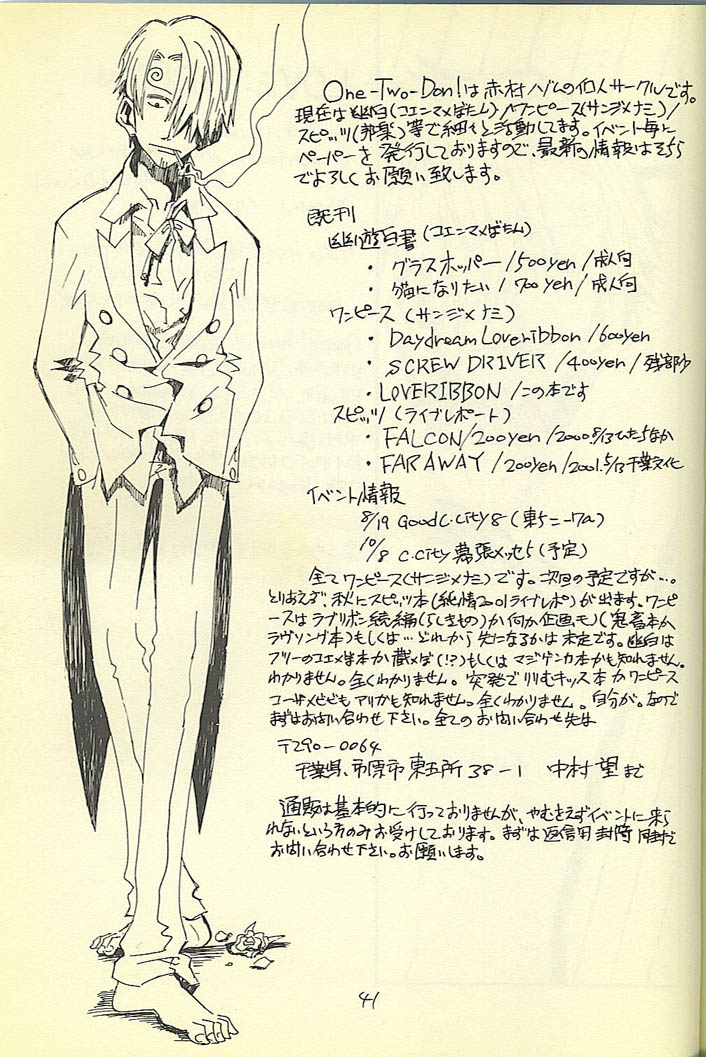 One-Two-Don!は赤村ノゾムの個人サークルです。
現在は幽白(コエンマ×ぼたん)/ワンピース(サンジ×ナミ)/
スピッツ(邦楽)等で細々と活動してます。イベント毎に
ペーパーを発行しておりますので、最新の情報はそちら
でよろしくお願い致します。
既刊
幽遊白書(コエンマ×ぼたん)
・グラスホッパー/500yen/成人向
・猫になりたい/700yen/成人向
ワンピース(サンジ×ナミ)
・Daydream Loveribbon/600yen
・SCREW DRIVER/400yen/残部少
・LOVERIBBON/この本です
スピッツ(ライブレポート)
・FALCON/200yen/2000.8/13ひたちなか
・FARAWAY/200yen/2001.5/13千葉文化
イベント情報
8/19 Good C.City8(東5ニ-17a)
10/8 C.City幕張メッセ5(予定)
全てワンピース(サンジ×ナミ)です。次回の予定ですが…。
とりあえず、秋にスピッツ本(純情2001ライブレポ)が出ます。ワンピ
ースはラブリボン続編(らしきもの)か何か企画モノ(鬼畜本か
ラヴソング本)もしくは…どれから先になるかは未定です。幽白は
フリーのコエ×ぼ本か蔵×ぼ(!?)もしくはマジゲンカ本かも知れません。
わかりません。全くわかりません。突発でりりむキッス本かワンピース
コーザ×ビビもアリかも知れません。全くわかりません。自分が。なので
まずはお問い合わせ下さい。全てのお問い合わせ先は
〒290-0064
千葉県、市原市東五所38-1 中村望まで
通販は基本的に行っておりませんが、やむをえずイベントに来ら
れないという方のみお受けしております。まずは返信用封筒同封で
お問い合わせ下さい。お願いします。
41